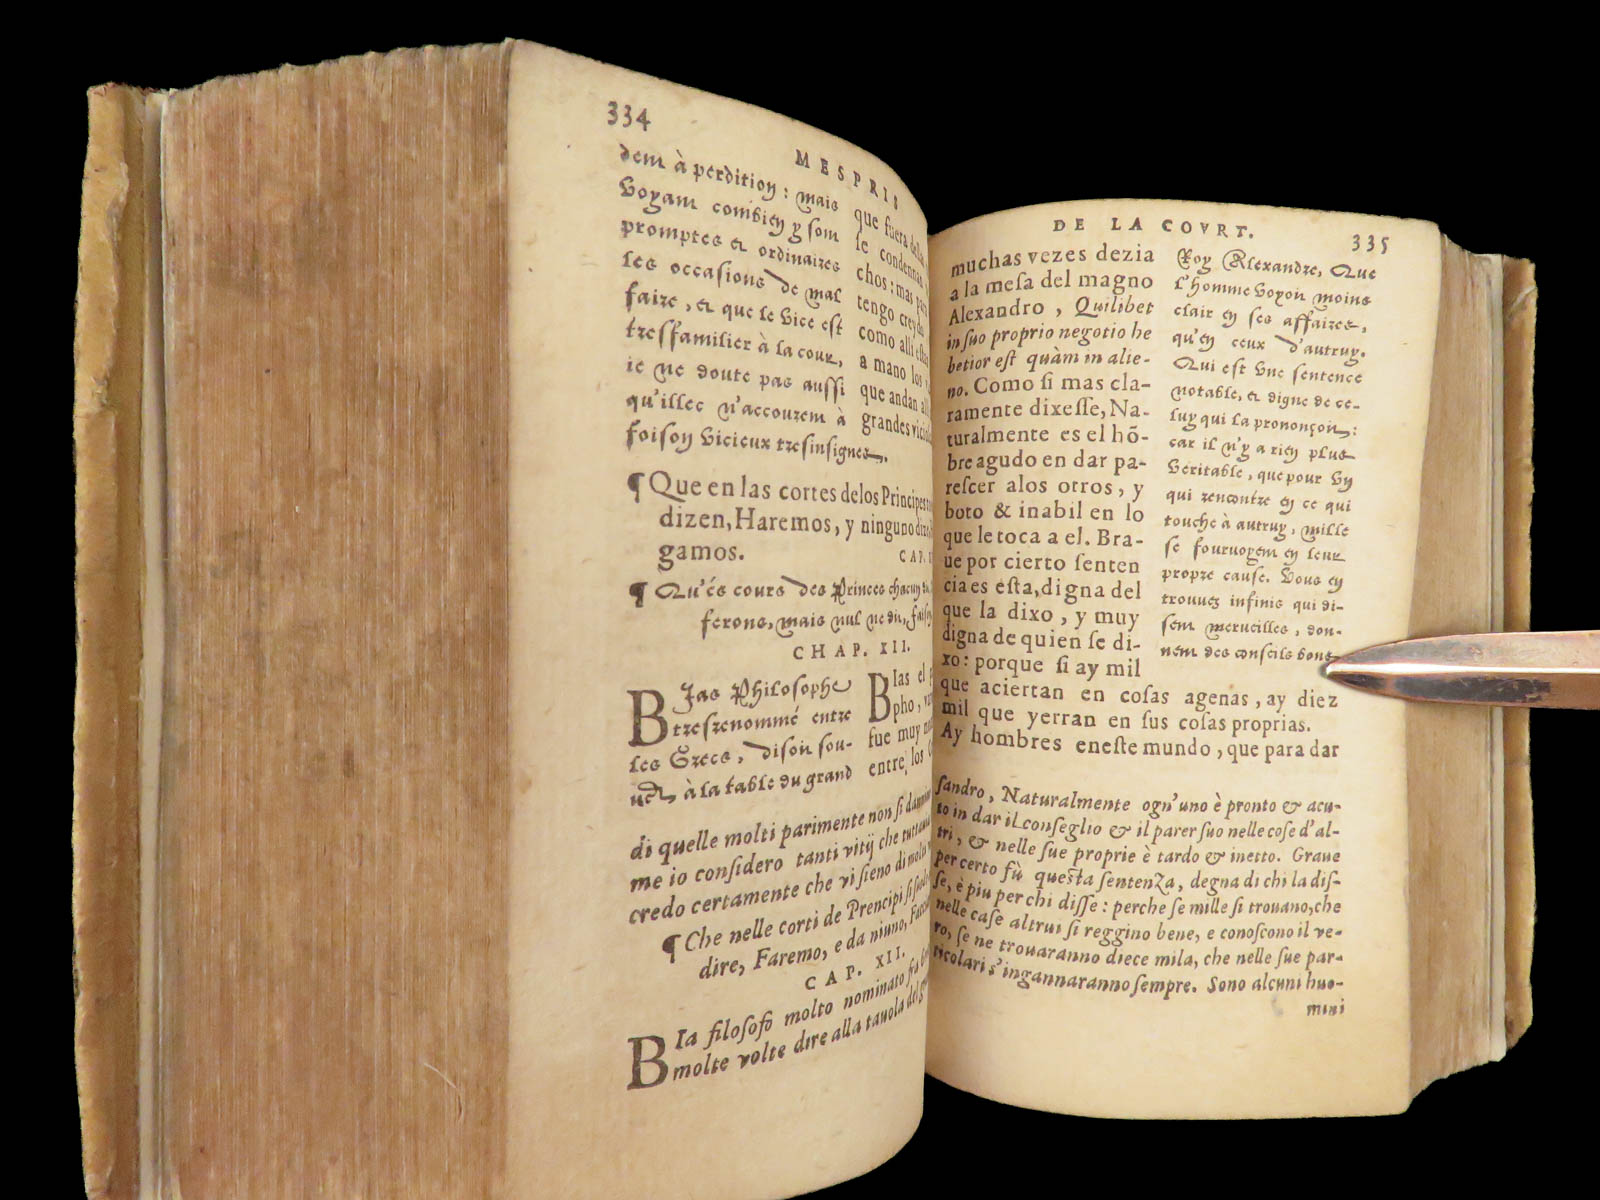 334
MESPRIS
dem à perdition : mais
voyant combien y sont
promptes et ordinaires
les occasions de mal
faire, et que le vice est
tresfamilier à la court,
ie ne doute pas aussi
qu'illec n'accourent à
foison vicieux tresinsignes.
que fuera della
se condennan
chos : mas para
tengo creydo
como alli estan
a mano los
que andan alli
grandes vicio
¶ Que en las cortes delos Principes
dizen, Haremos, y ninguno dize,
gamos.
CAP.
¶ Qu'és cours des Princes chacun
ferons, mais nul ne dit, faisons
CHAP. XII.
BIas Philosophe
tresrenommé entre
les Grecs, disoit sou-
uent à la table du grand
BIas el
pho, va
fue muy
entre los
di quelle molti parimente non si dannino
me io considero tanti vitij che tuttauia
credo certamente che vi sieno di molti
¶ Che nelle corti de Prencipi si suol
dire, Faremo, e da niuno, Facci
CAP. XII.
BIa filosofo molto nominato fra
molte volte dire alla tauola del
DE LA COVRT.
335
muchas vezes dezia
a la mesa del magno
Alexandro, Quilibet
in suo proprio negotio he
betior est quàm in alie-
no. Como si mas cla-
ramente dixesse, Na-
turalmente es el hõ-
bre agudo en dar pa-
rescer alos otros, y
boto & inabil en lo
que le toca a el. Bra-
ue por cierto senten
cia es esta, digna del
que la dixo, y muy
digna de quien se di-
xo : porque si ay mil
que aciertan en cosas agenas, ay diez
mil que yerran en sus cosas proprias.
Ay hombres eneste mundo, que para dar
Roy Alexandre, Que
l'homme voyoit moins
clair en ses affaires,
qu'en ceux d'autruy.
Qui est vne sentence
notable, et digne de ce-
luy qui la prononçoit:
car il n'y a rien plus
veritable, que pour vn
qui rencontre en ce qui
touche à autruy, mille
se fouruoyent en leur
propre cause. Vous en
trouuez infinis qui di-
sent merueilles, don-
nent des conseils bons
sandro, Naturalmente ogn'uno è pronto & acu-
to in dar il conseglio & il parer suo nelle cose d'al-
tri, & nelle sue proprie è tardo & inetto. Graue
per certo fù questa sentenza, degna di chi la dis-
se, è piu per chi disse : perche se mille si trouano, che
nelle case altrui si reggino bene, e conoscono il ve-
ro, se ne trouaranno diece mila, che nelle sue par-
ticolari s'ingannaranno sempre. Sono alcuni huo-
mini